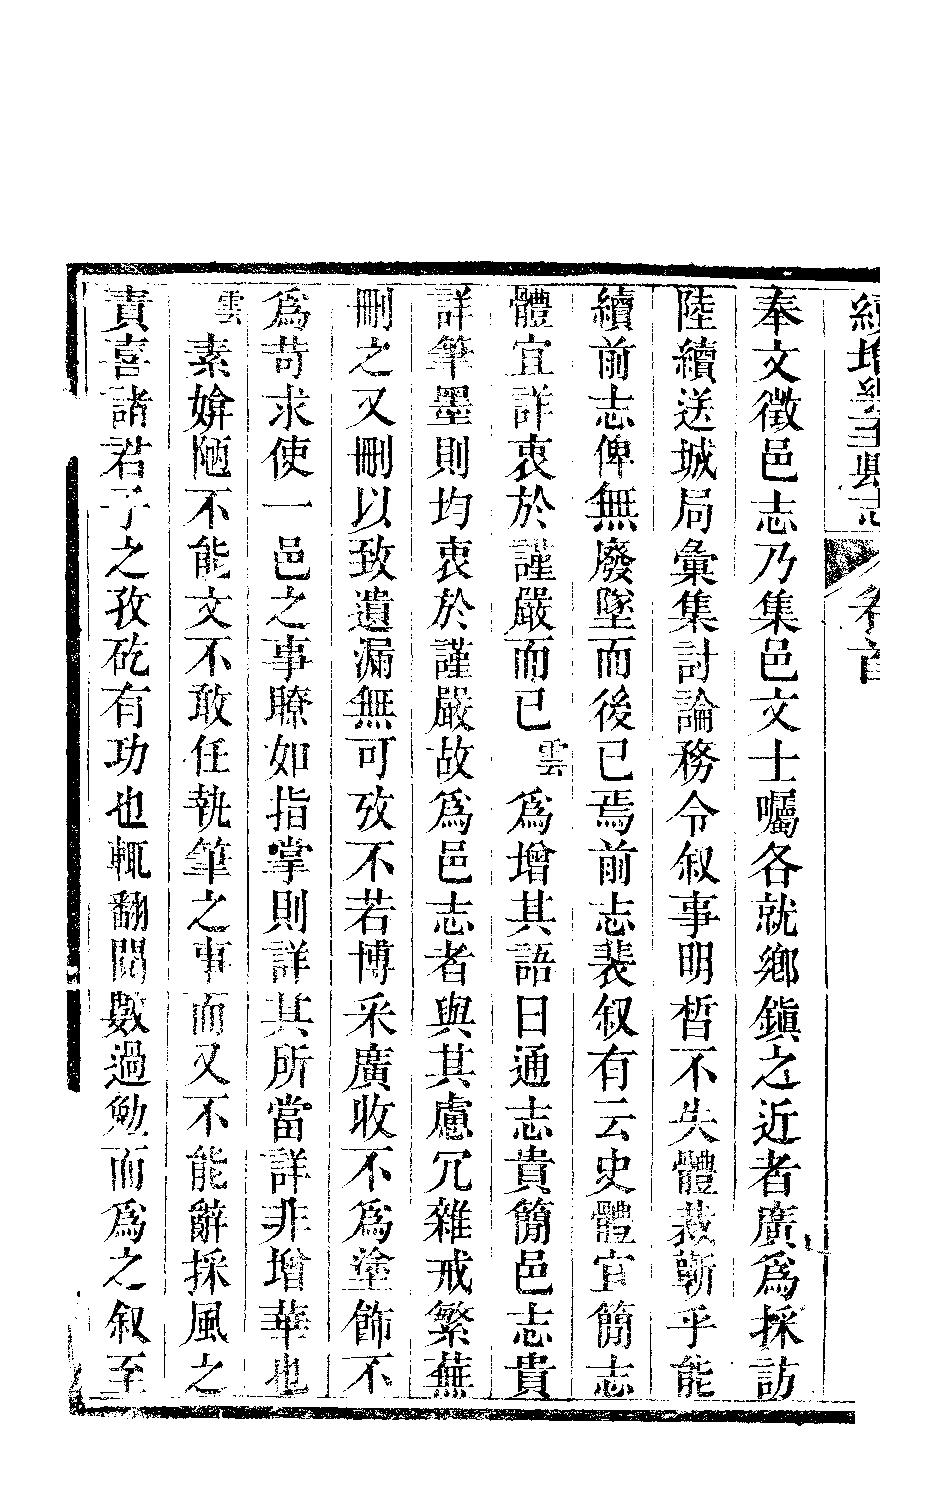 續增樂至縣志 卷首
奉文徵邑志乃集邑文士囑各就鄉鎮之近者廣爲採訪
陸續送城局彙集討論務令叙事明晳不失體裁蘄乎能
續前志俾無廢墜而後已焉前志裴叙有云史體宜簡志
體宜詳衷於謹嚴而已雲爲增其語曰通志貴簡邑志貴
詳筆墨則均衷於謹嚴故爲邑志者與其慮冗雜戒繁蕪
刪之又刪以致遺漏無可攷不若博采廣收不爲塗飾不
爲苛求使一邑之事瞭如指掌則詳其所當詳非增華也
雲素媕陋不能文不敢任執筆之事而又不能辭採風之
責喜諸君子之孜矻有功也輒翻閱數過勉而爲之叙至